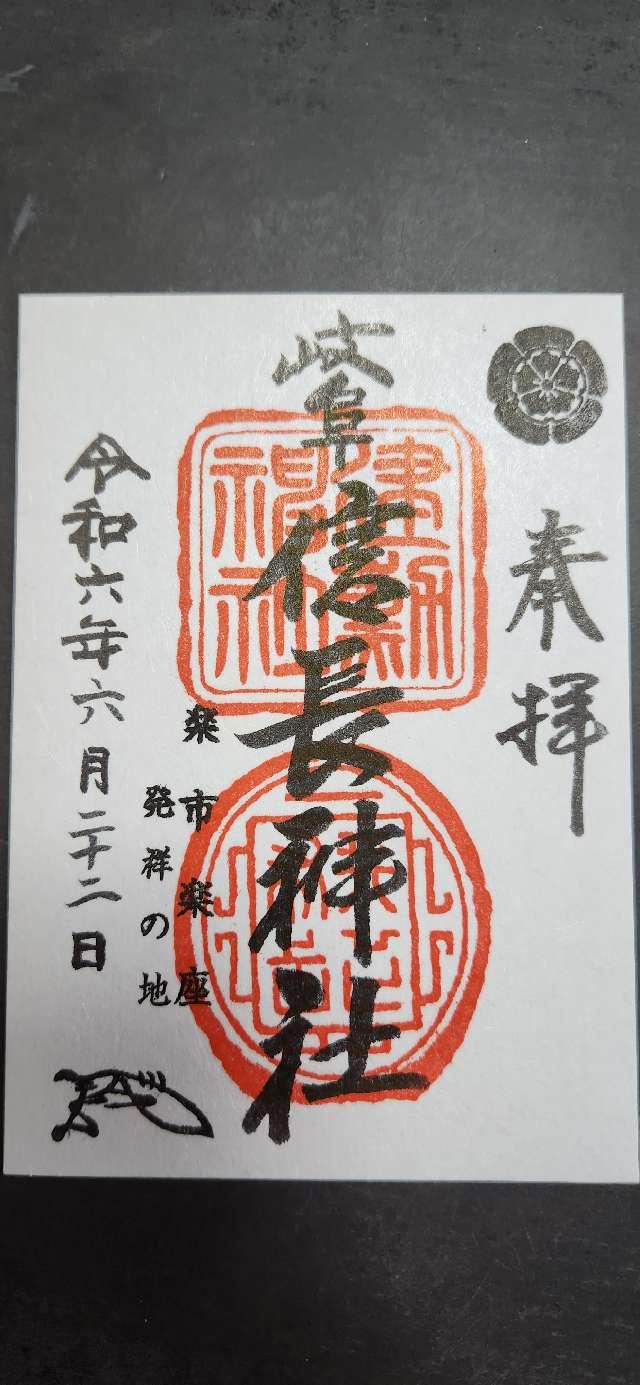 奉拝
岐阜
信長神社
建勲
神社
楽市楽座
発祥の地
令和六年六月二十二日